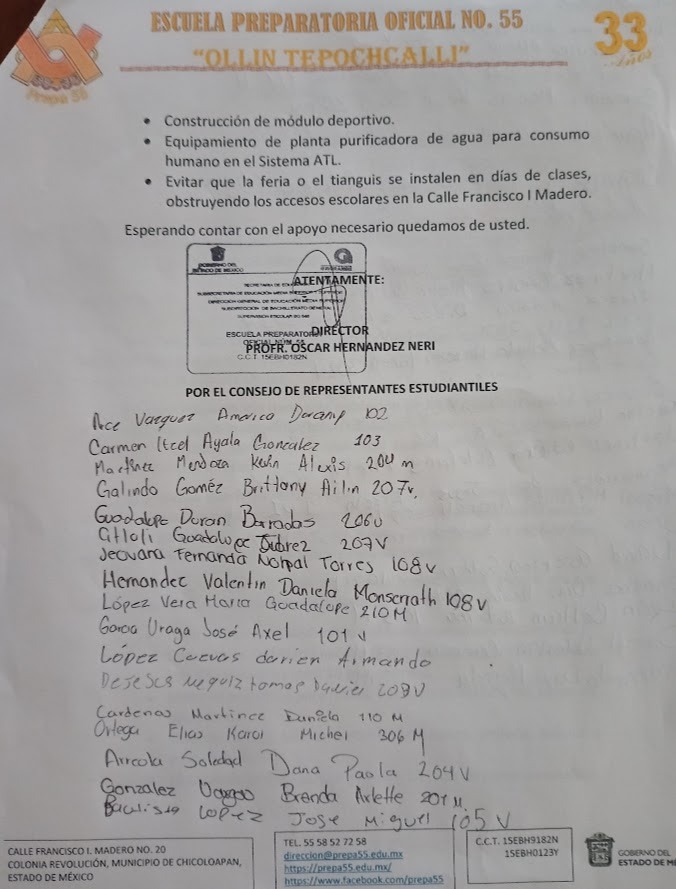 ESCUELA PREPARATORIA OFICIAL NO. 55
"OLLIN TEPOCHCALLI"
Prepa 55
33
Años
• Construcción de módulo deportivo.
• Equipamiento de planta purificadora de agua para consumo
humano en el Sistema ATL.
• Evitar que la feria o el tianguis se instalen en días de clases,
obstruyendo los accesos escolares en la Calle Francisco I Madero.
Esperando contar con el apoyo necesario quedamos de usted.
GOBIERNO DEL
ESTADO DE MÉXICO
ATENTAMENTE:
DIRECCIÓN GENERAL DE EDUCACIÓN MEDIA SUPERIOR
SUPERVISIÓN ESCOLAR
ESCUELA PREPARATORIA
OFICIAL NÚM. 55
C.C.T. 15EBH0182N
DIRECTOR
PROFR. OSCAR HERNANDEZ NERI
POR EL CONSEJO DE REPRESENTANTES ESTUDIANTILES
Vazquez America 102
Carmen Itzel Ayala Gonzalez 103
Martínez Mendoza Kevin Alexis 204 m
Galindo Goméz Brittany Ailin 207v.
Guadalupe Duran Baradas 206v
Citlali Guadalupe 207V
Fernanda Torres 108v
Hernandez Valentin Daniela Monserrath 108v
López Vera Maria Guadalupe 210M
Garcia Uraga José Axel 101 v
López Cuevas darien Armando
tomas 209V
Cardenas Martinez Daniela 110 M
Ortega Elias Karol Michel 306 M
Arreola Soledad Dana Paola 204V
Gonzalez Vargas Brenda Arlette 201 M.
Bautista LOPEZ Jose Miguel 105 V
CALLE FRANCISCO I. MADERO NO. 20
COLONIA REVOLUCIÓN, MUNICIPIO DE CHICOLOAPAN,
ESTADO DE MÉXICO
TEL. 55 58 52 72 58
direccion@prepa55.edu.mx
https://prepa55.edu.mx/
https://www.facebook.com/prepa55
C.C.T. 15EBH9182N
15EBH0123Y
GOBIERNO DEL
ESTADO DE MÉ